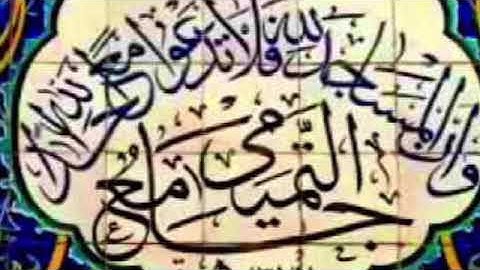 وأن المساجد لله فلا تدعوا مع الله أحدا
جامع التميمي